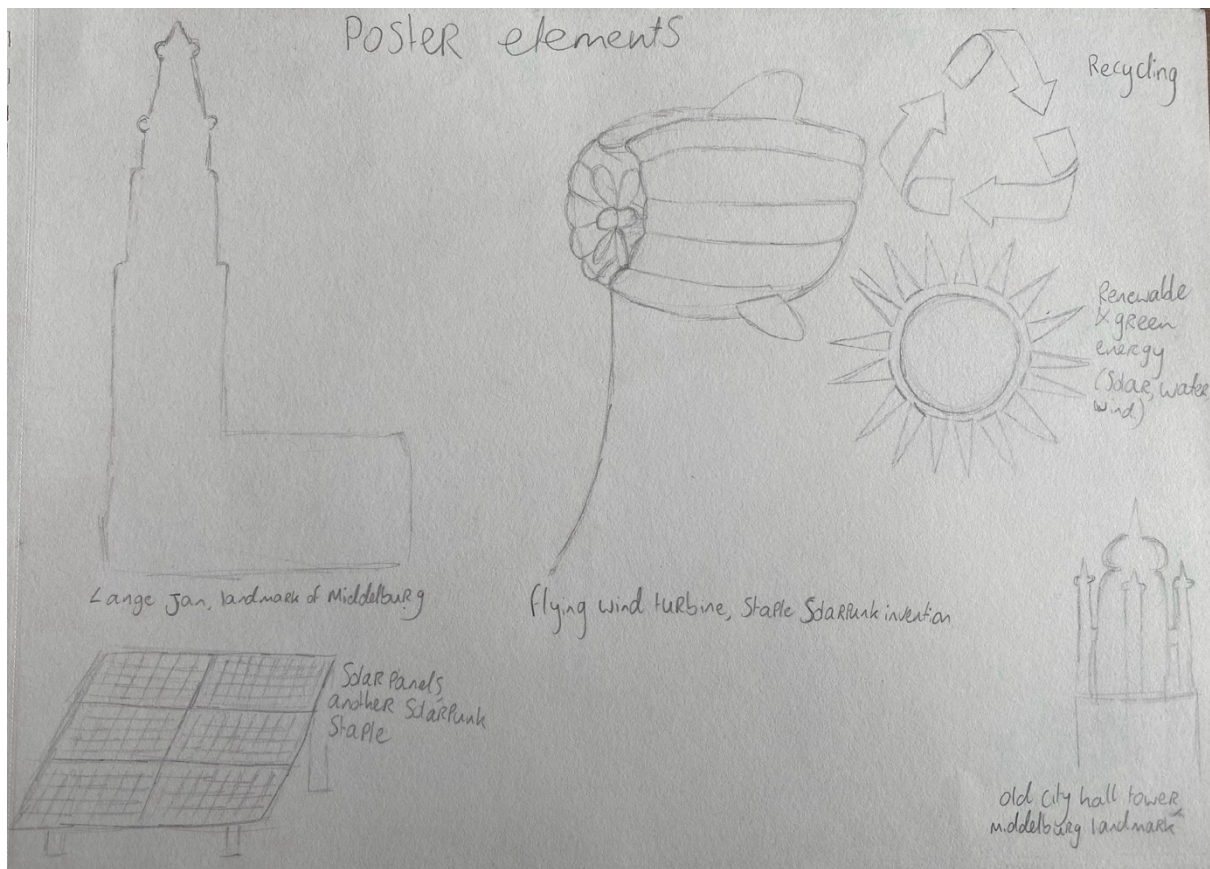 Poster elements
Recycling
Renewable
& green
energy
(Solar, water,
wind)
Lange Jan, landmark of Middelburg
flying wind turbine, Staple Solarpunk invention
Solar panels,
another Solarpunk
Staple
old city hall tower,
middelburg landmark